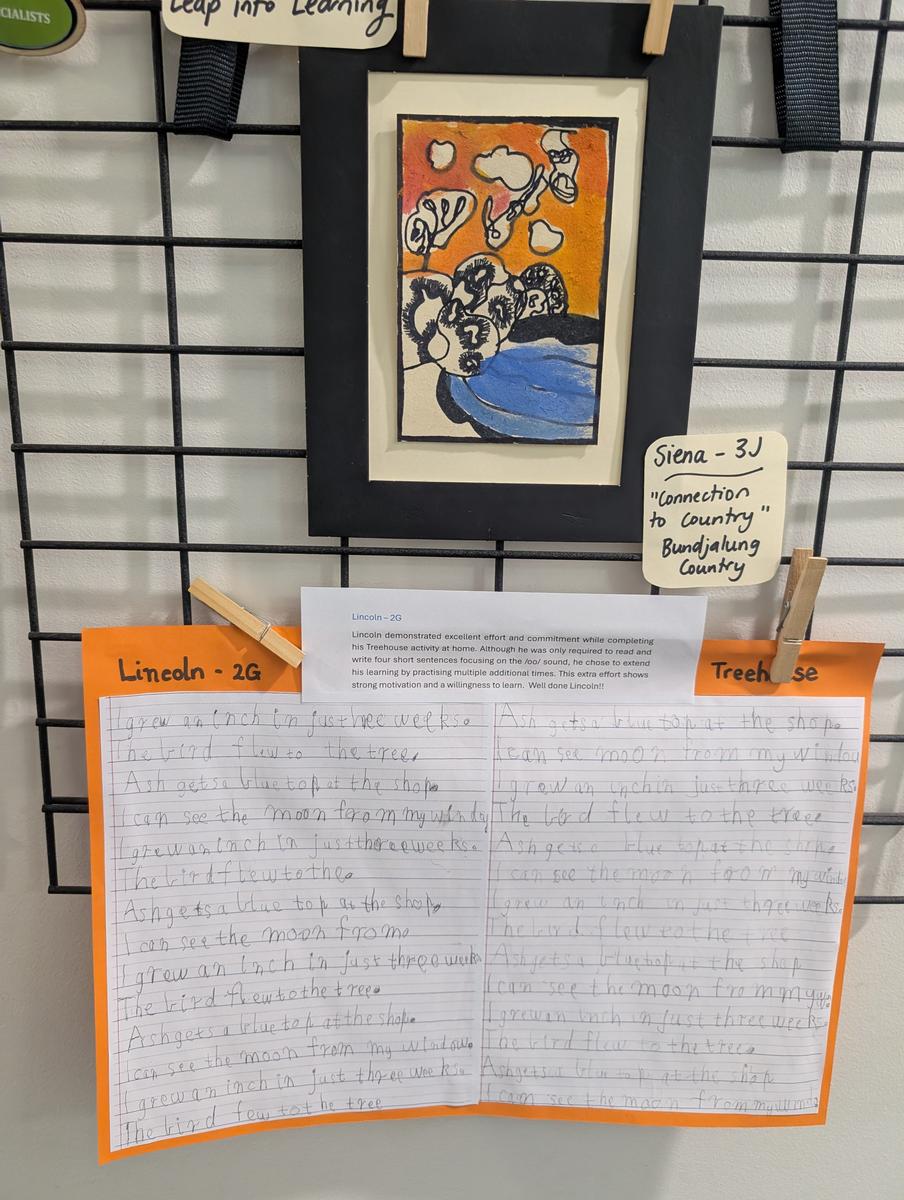 CIALISTS
Leap into Learning
Siena - 3J
"Connection
to Country"
Bundjalung
Country
Lincoln – 2G
Lincoln demonstrated excellent effort and commitment while completing
his Treehouse activity at home. Although he was only required to read and
write four short sentences focusing on the /oo/ sound, he chose to extend
his learning by practising multiple additional times. This extra effort shows
strong motivation and a willingness to learn.  Well done Lincoln!!
Lincoln - 2G
Treeh se
I grew an inch in just hree weeks.
The bird flew to the tree.
Ash gets a blue top at the shop.
I can see the moon from my windy
I grew an inch in just three weeks.
The bird flew to the.
Ash gets a blue top at the shop.
I can see the moon from.
I grew an inch in just three week
The bird flew to the tree.
Ash gets a blue top at the shop.
I can see the moon from my window.
I grew an inch in just three weeks.
The bird few to the tree
Ash gets a blue top at the shop.
I can see moon from my window
I grew an inch in just three weeks.
The bird flew to the tree
Ash gets a blue top at the shop.
I can see the moon from my
I grew an inch in just three weeks.
The bird flew to the tree
Ash gets a blue top at the shop
I can see the moon from my
I grew an inch in just three weeks.
The bird flew to the tree.
Ash gets a blue top at the shop
I can see the moon from my